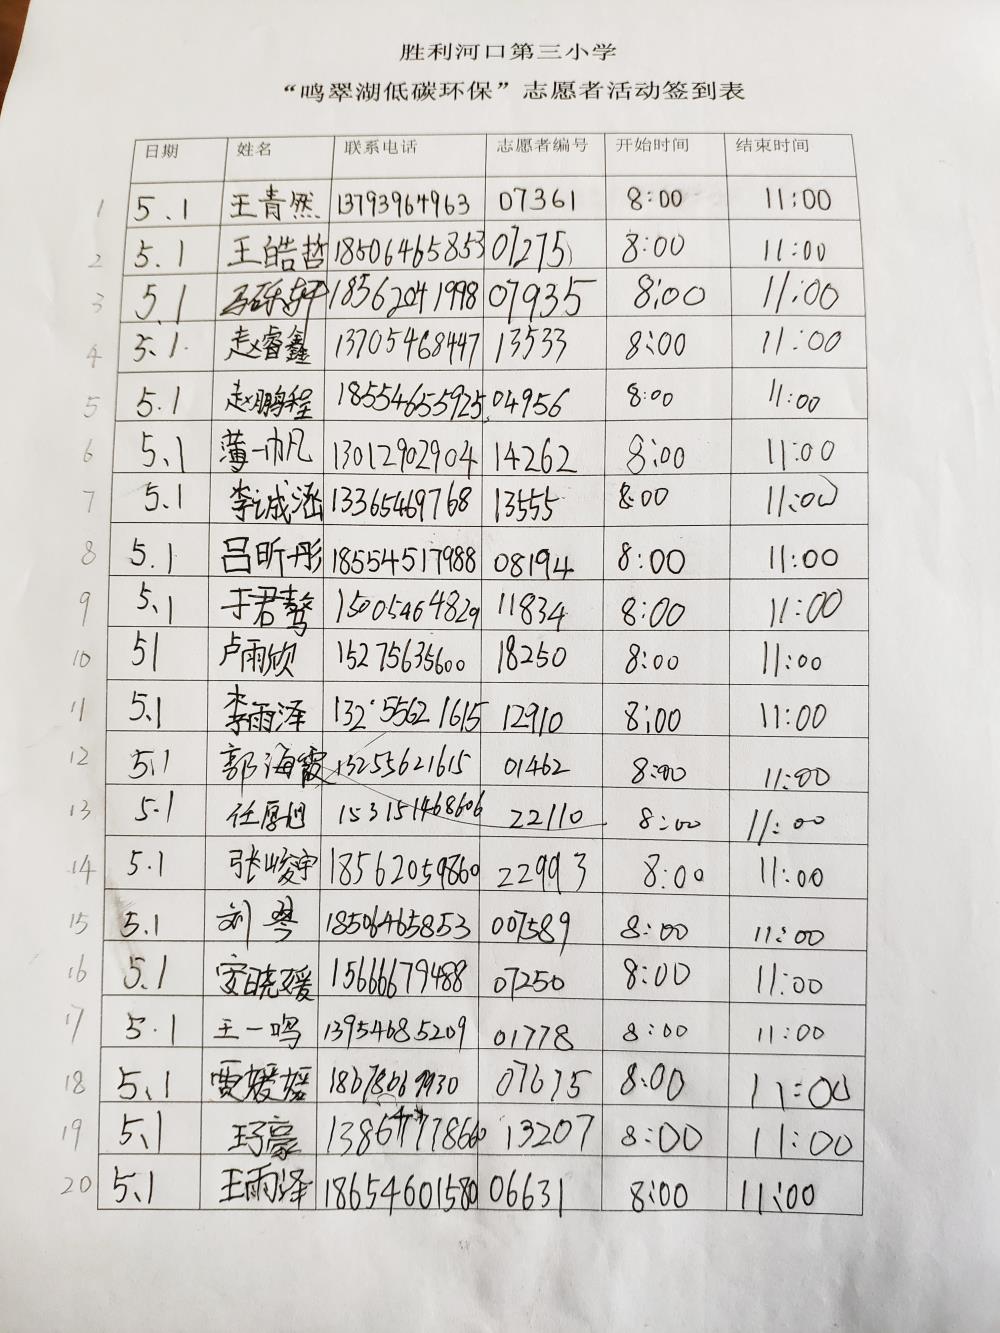 胜利河口第三小学
“鸣翠湖低碳环保”志愿者活动签到表
日期 姓名 联系电话 志愿者编号 开始时间 结束时间
1 5.1 王青然 13793964963 07361 8:00 11:00
2 5.1 王皓哲 18506465853 07275 8:00 11:00
3 5.1 18562041998 07935 8:00 11:00
4 5.1 赵睿鑫 13705468447 13533 8:00 11:00
5 5.1 赵鹏程 18554655925 04956 8:00 11:00
6 5.1 薄一帆 13012902904 14262 8:00 11:00
7 5.1 李诚涵 13365469768 13555 8:00 11:00
8 5.1 吕昕彤 18554517988 08194 8:00 11:00
9 5.1 于君骜 15005464829 11834 8:00 11:00
10 51 卢雨欣 15275635600 18250 8:00 11:00
11 5.1 李雨泽 12910 8:00 11:00
12 5.1 郭海霞 13255621615 01462 8:00 11:00
13 5.1 22110 8:00 11:00
14 5.1 张峻宇 18562059860 22993 8:00 11:00
15 5.1 刘琴 18506465853 007589 8:00 11:00
16 5.1 安晓媛 15666679488 07250 8:00 11:00
17 5.1 王一鸣 13954685209 01778 8:00 11:00
18 5.1 贾媛媛 07675 8:00 11:00
19 5.1 13207 8:00 11:00
20 5.1 王雨泽 18654601580 06631 8:00 11:00